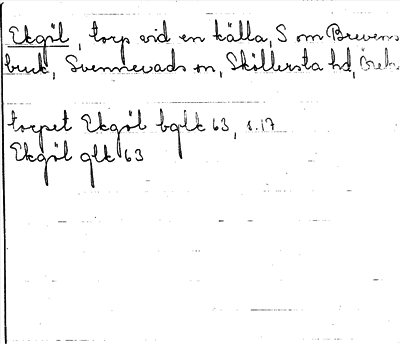 Ekgöl, torp vid en källa, S om Brevens
bruk, Svennevads sn, Sköllersta hd, Öreb.
torpet Ekgöl bglk 63, s. 17
Ekgöl glk 63